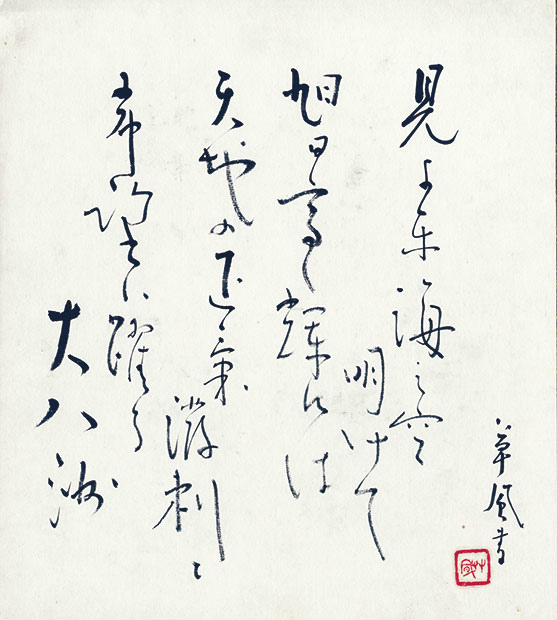 見よ東海之空
明けて
旭日高く輝けは
天地の正氣
溌剌と
希望は躍る
大八洲
草風書